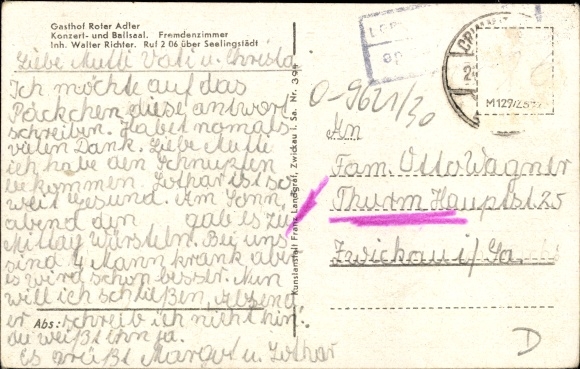 Gasthof Roter Adler
Konzert- und Ballsaal. Fremdenzimmer
Inh. Walter Richter. Ruf 2 06 über Seelingstädt
Liebe Mutti Vati u. Christa
Ich möchte auf das
Päckchen diese antwort
schreiben. Habet nomals
vielen Dank. Liebe Mutti
ich habe den Schnupfen
bekommen. Lothar ist so
weit gesund. Am Sonn
abend den gab es zu
Mittag Würsteln. Bei uns
sind 4 Mann krank aber
es wird schon besser. Nun
will ich schließen, Absend
er schreib ich nicht hin.
die weißt ihn ja.
Es grüßt Margot u. Lothar
Abs:
Kunstanstalt Franz Landgraf, Zwickau i. Sa. Nr. 394
0-9621/30
M 129/2
An
Fam. Otto Wagner
Thurm Hauptst 25
Zwickau i/Sa.
D